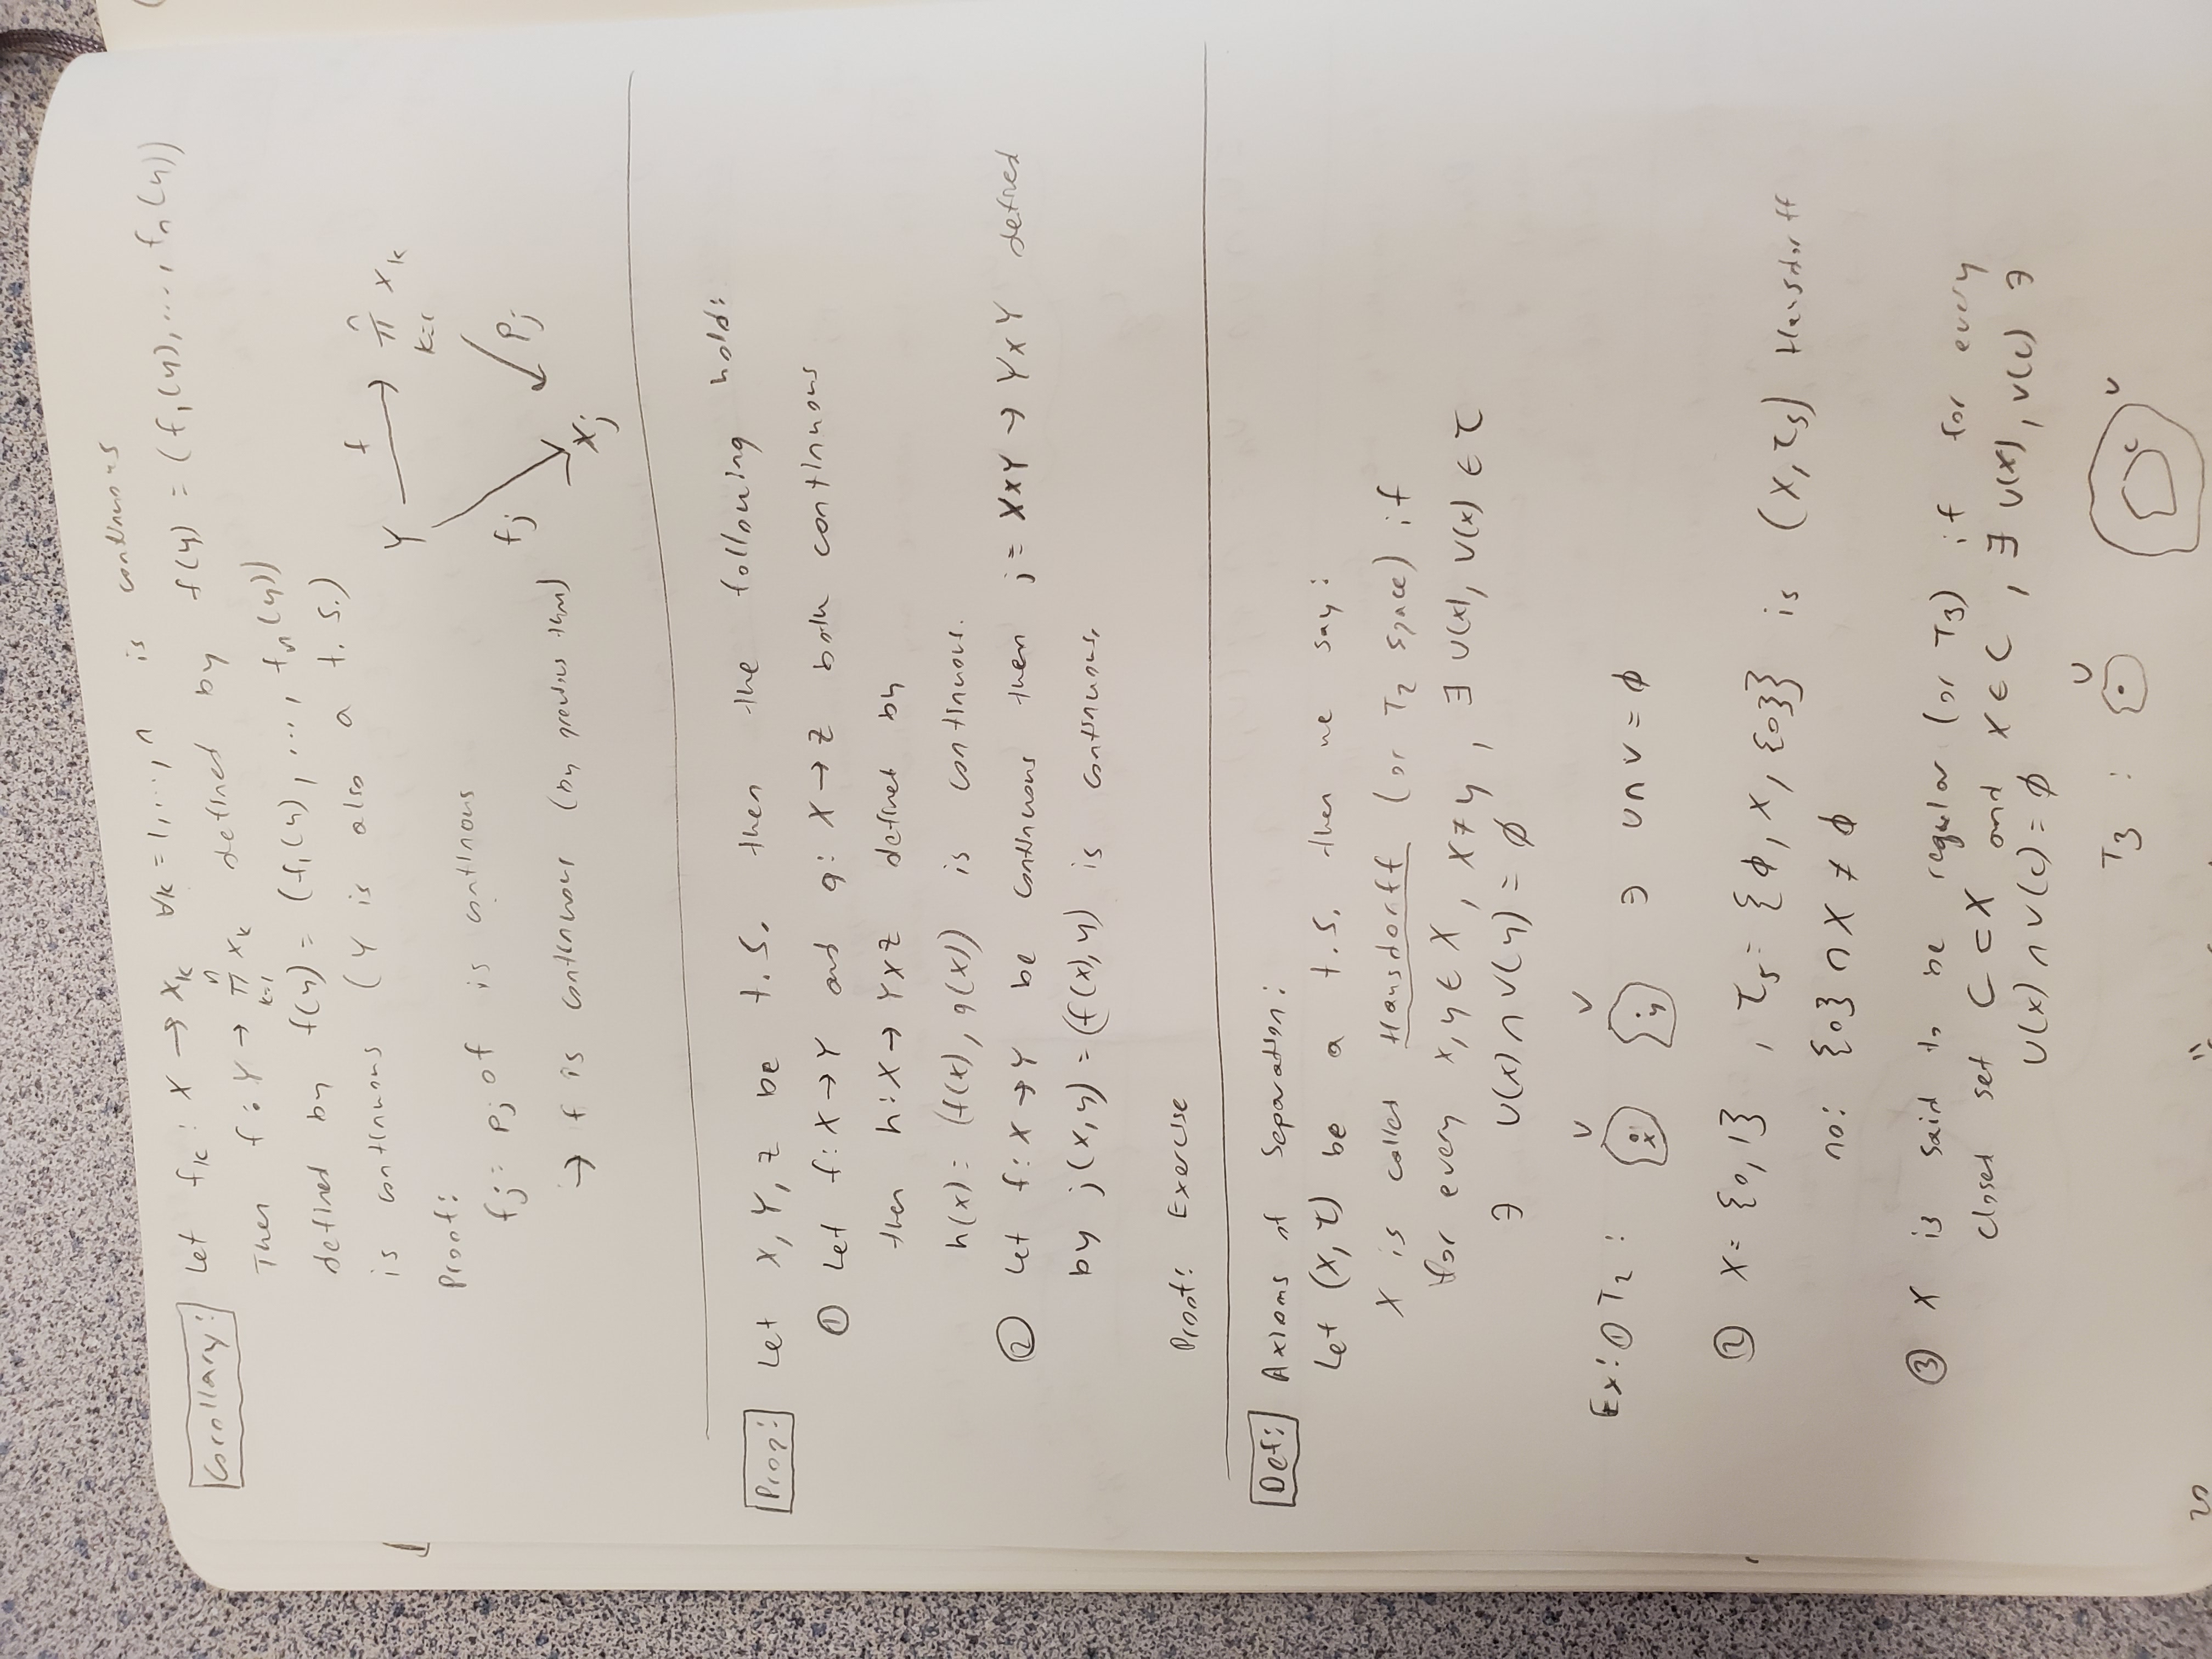 Corollary: Let fₖ: X → Xₖ ∀k = 1,...,n is continuous
Then f: Y → ∏ₖ₌₁ⁿ Xₖ defined by f(y) = (f₁(y),..., fₙ(y))
defined by f(y) = (f₁(y), ..., fₙ(y))
is continuous (Y is also a t.s.)
Y f ∏ₖ₌₁ⁿ Xₖ
Proof:
fⱼ = pⱼ∘f is continous
fⱼ pⱼ
→ f is continuous (by previous thm)
Xⱼ
Prop: Let X, Y, Z be t.s. then the following hold:
① Let f: X → Y and g: X → Z both continuous
then h: X → Y×Z defined by
h(x) = (f(x), g(x)) is continuous.
② Let f: X → Y be continuous then j = X×Y → Y×Y defined
by j(x,y) = (f(x), y) is continuous.
Proof: Exercise
Def: Axioms of Separation:
Let (X, τ) be a t.s. then we say:
X is called Hausdorff (or T₂ space) if
for every x, y ∈ X, x ≠ y, ∃ U(x), V(x) ∈ τ
∋ U(x) ∩ V(y) = ∅
Ex: ① T₂: U x V y ∋ U ∩ V = ∅
② X = {0,1}, τₛ = {∅, X, {0}} is (X, τₛ) Hausdorff
no: {0} ∩ X ≠ ∅
③ X is said to be regular (or T₃) if for every
closed set C ⊂ X and x ∈ C, ∃ U(x), V(c) ∋
U(x) ∩ V(c) = ∅
T₃: U C V